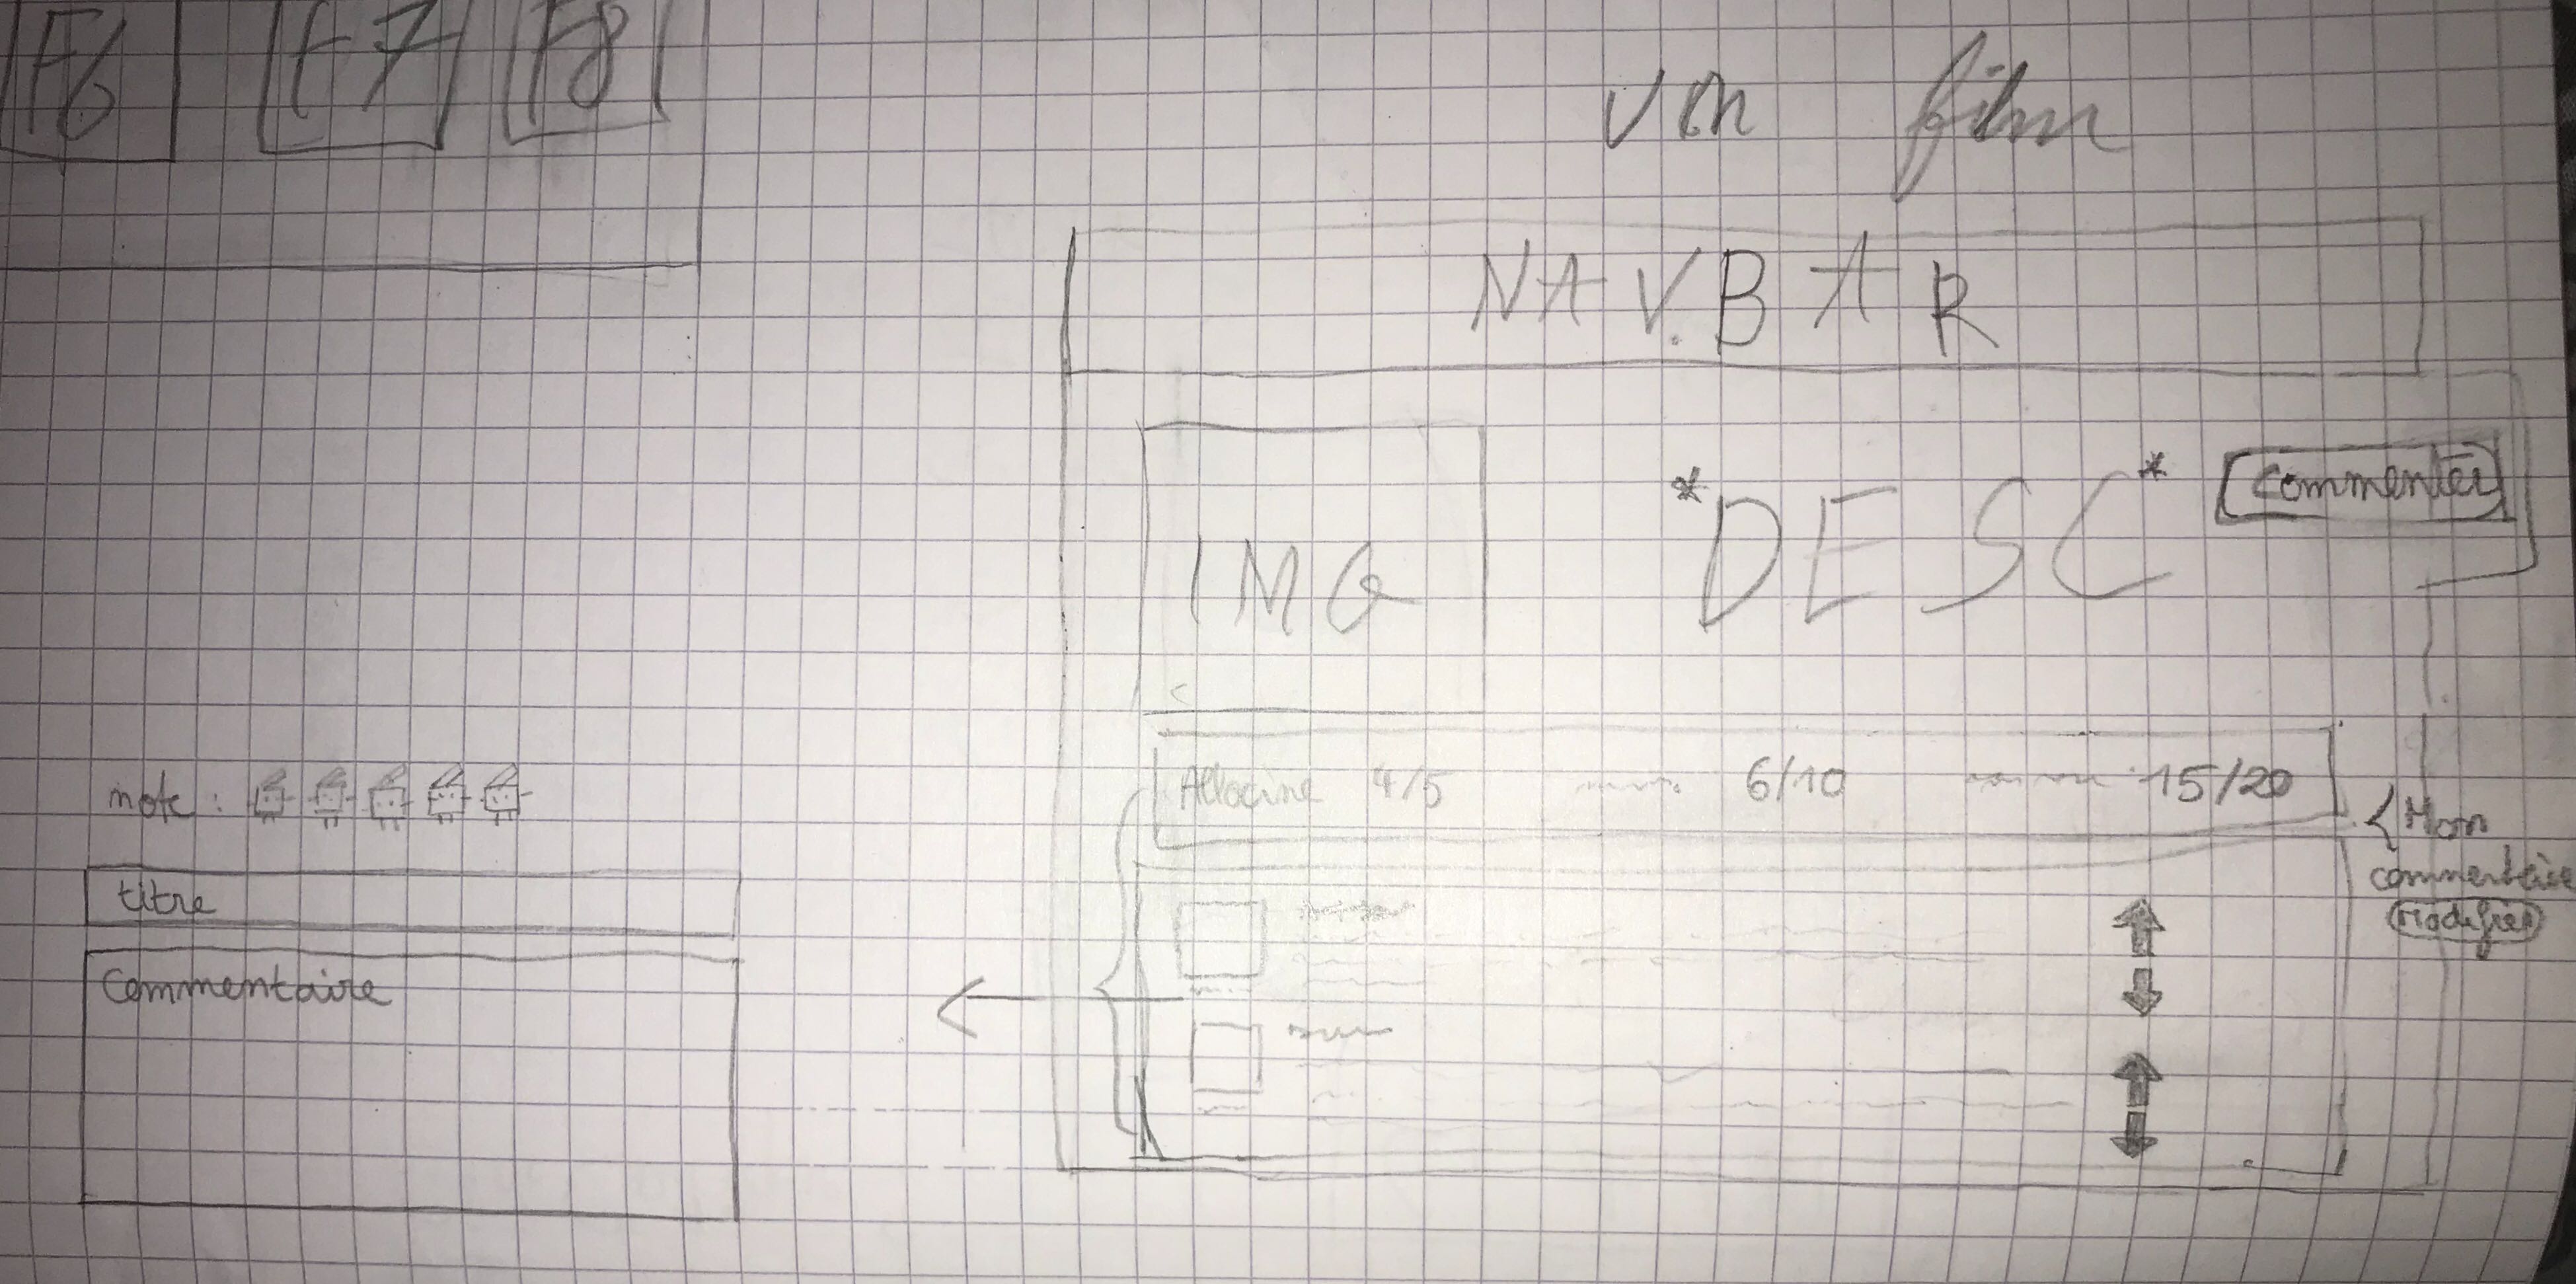 F6 F7 F8
un film
NAV.BAR
IMG
*DESC*
Commenter
Allociné 4/5 6/10 15/20
Mon
commentaire
Modifier
note :
titre
Commentaire